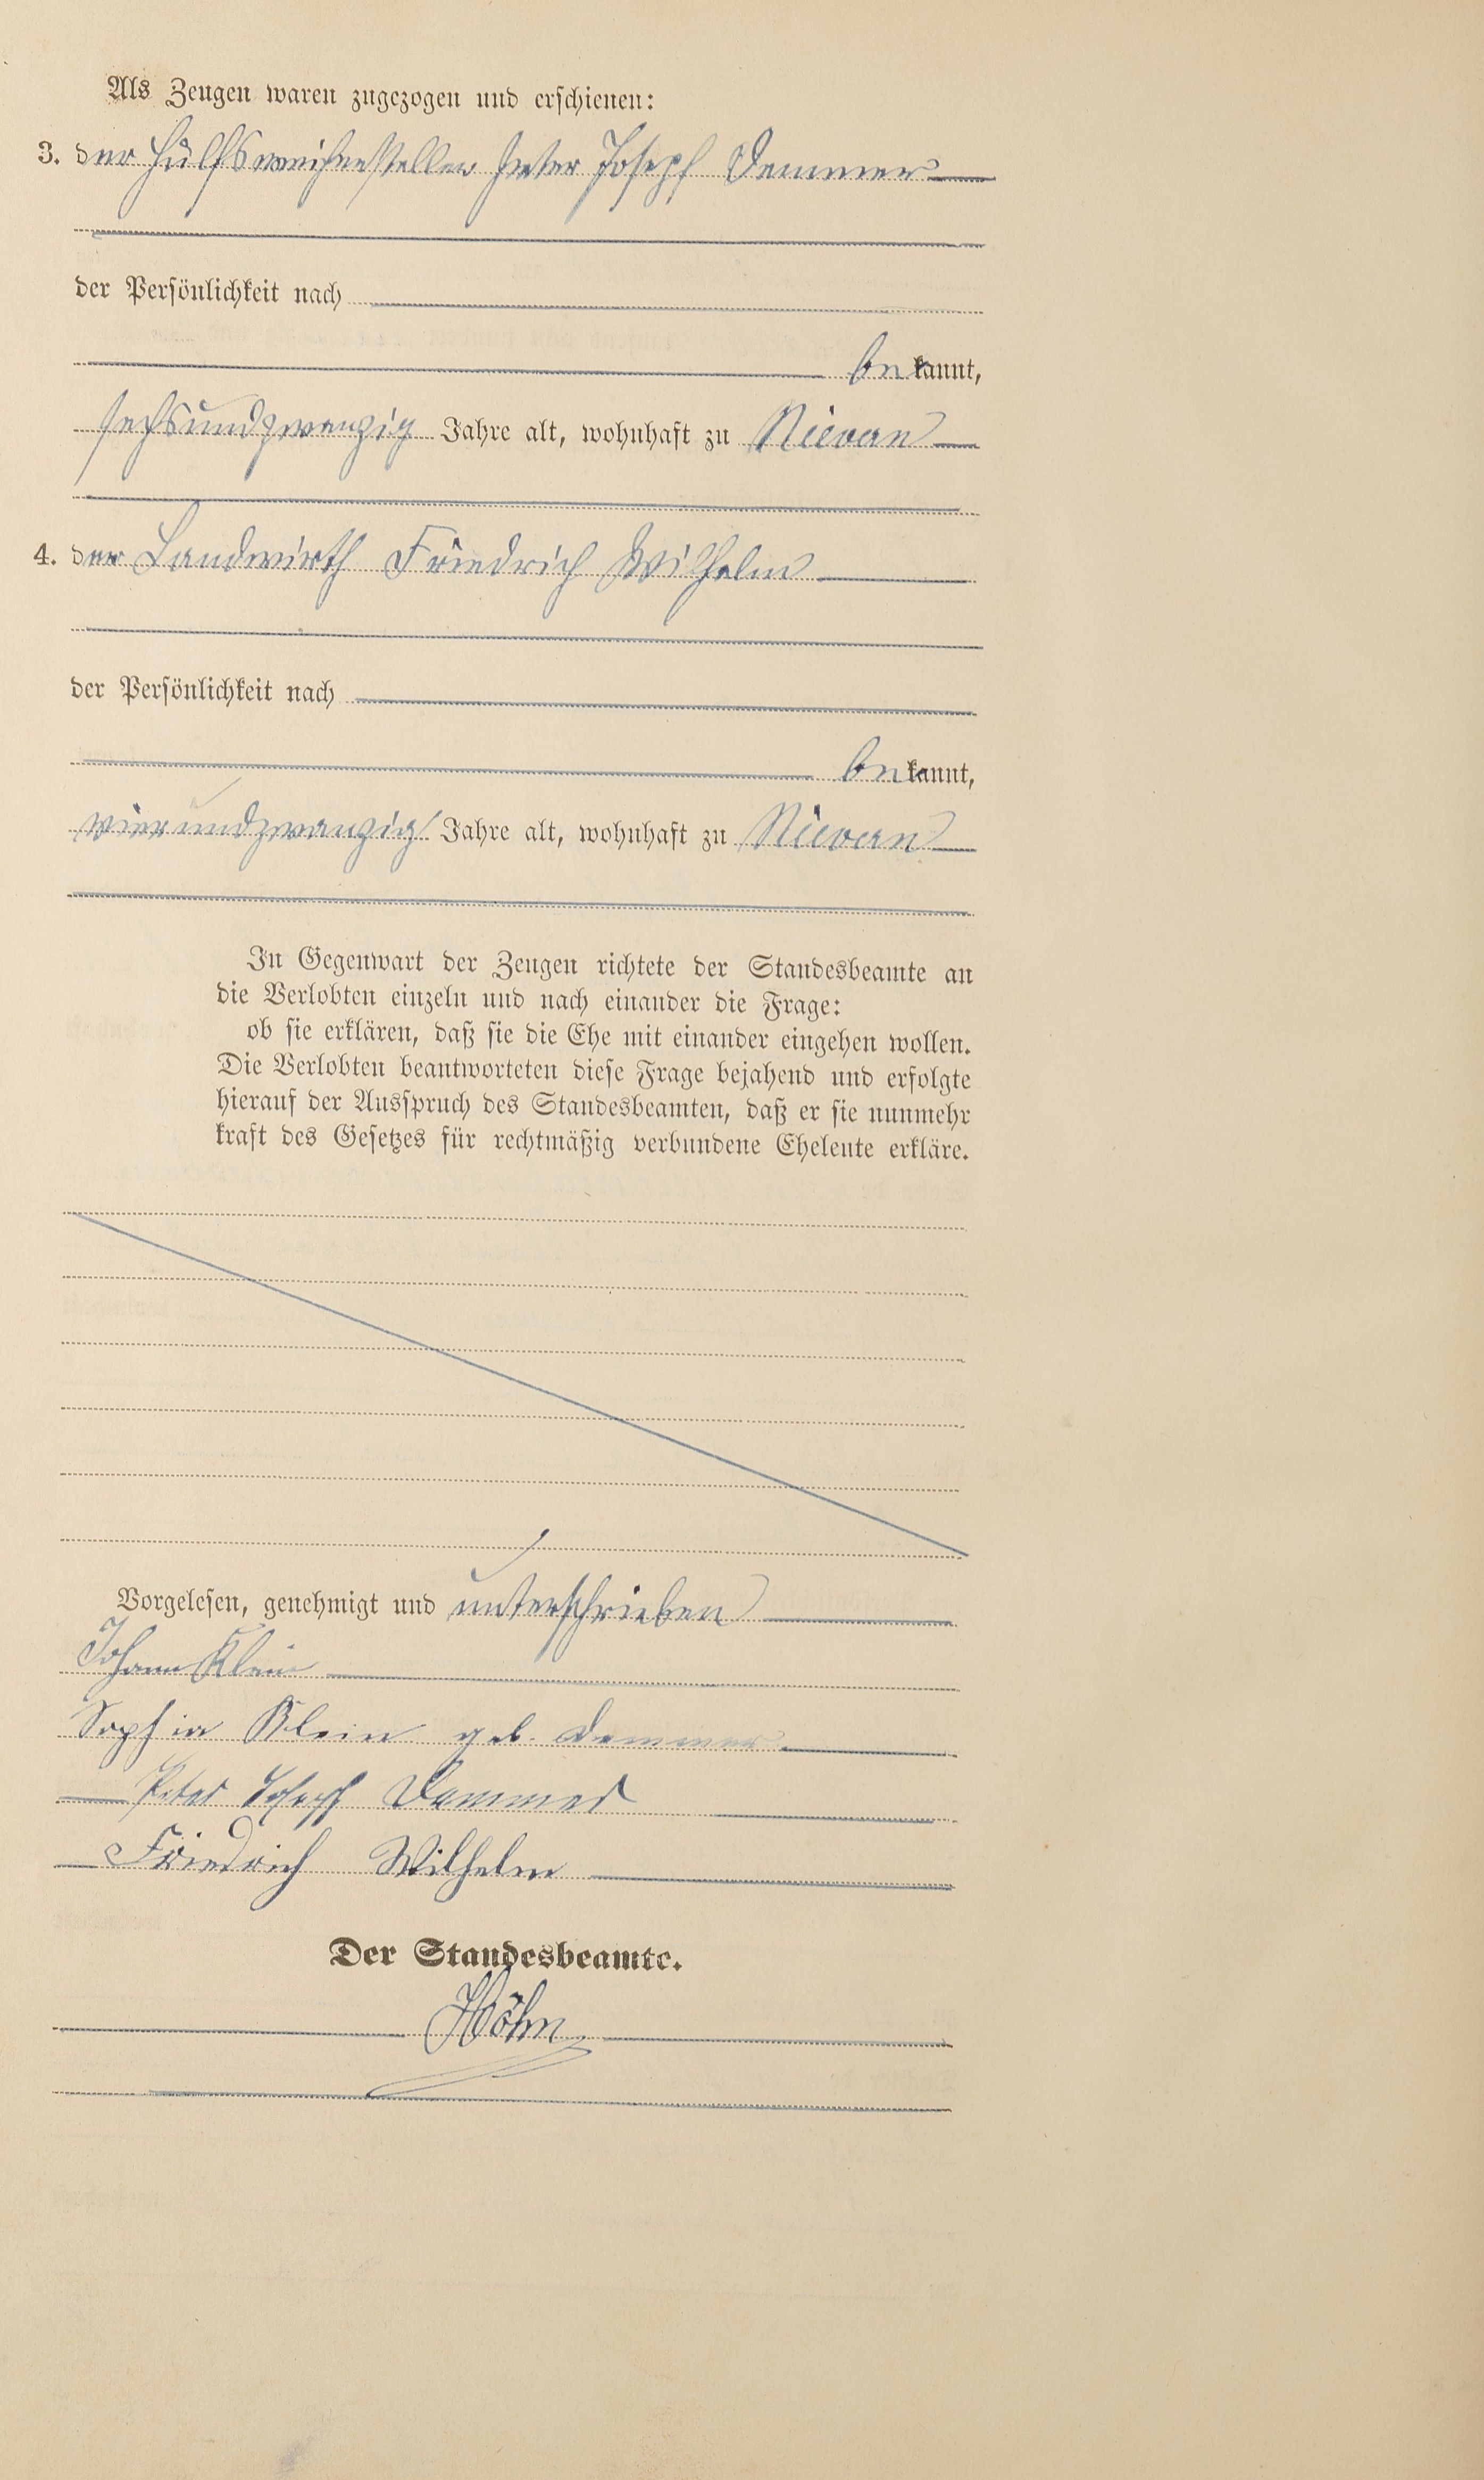 Als Zeugen waren zugezogen und erschienen:
3. der Hülfsweichensteller Peter Joseph Demmer
der Persönlichkeit nach
bekannt,
sechsundzwanzig Jahre alt, wohnhaft zu Nievern
4. der Landwirth Friedrich Wilhelm
der Persönlichkeit nach
bekannt,
vierundzwanzig Jahre alt, wohnhaft zu Nievern
In Gegenwart der Zeugen richtete der Standesbeamte an
die Verlobten einzeln und nach einander die Frage:
ob sie erklären, daß sie die Ehe mit einander eingehen wollen.
Die Verlobten beantworteten diese Frage bejahend und erfolgte
hierauf der Ausspruch des Standesbeamten, daß er sie nunmehr
kraft des Gesetzes für rechtmäßig verbundene Eheleute erkläre.
Vorgelesen, genehmigt und unterschrieben
Johann Klein
Sophia Klein geb. Demmer
Peter Joseph Demmer
Friedrich Wilhelm
Der Standesbeamte.
Höhn